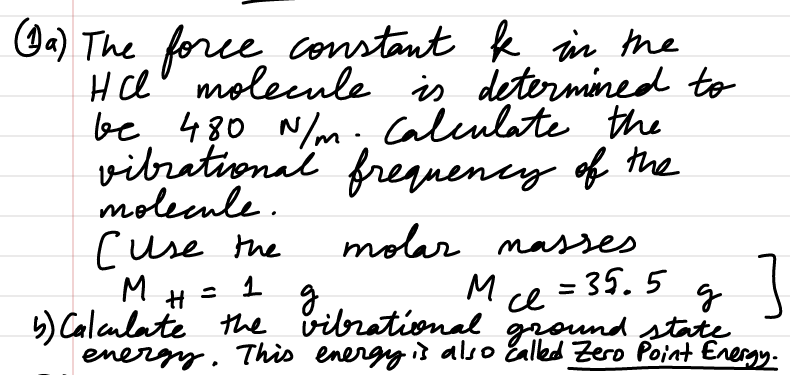 (1a) The force constant k in the
HCl molecule is determined to
be 480 N/m. Calculate the
vibrational frequency of the
molecule.
[Use the molar masses
M H = 1 g M Cl = 35.5 g ]
b) Calculate the vibrational ground state
energy. This energy is also called Zero Point Energy.